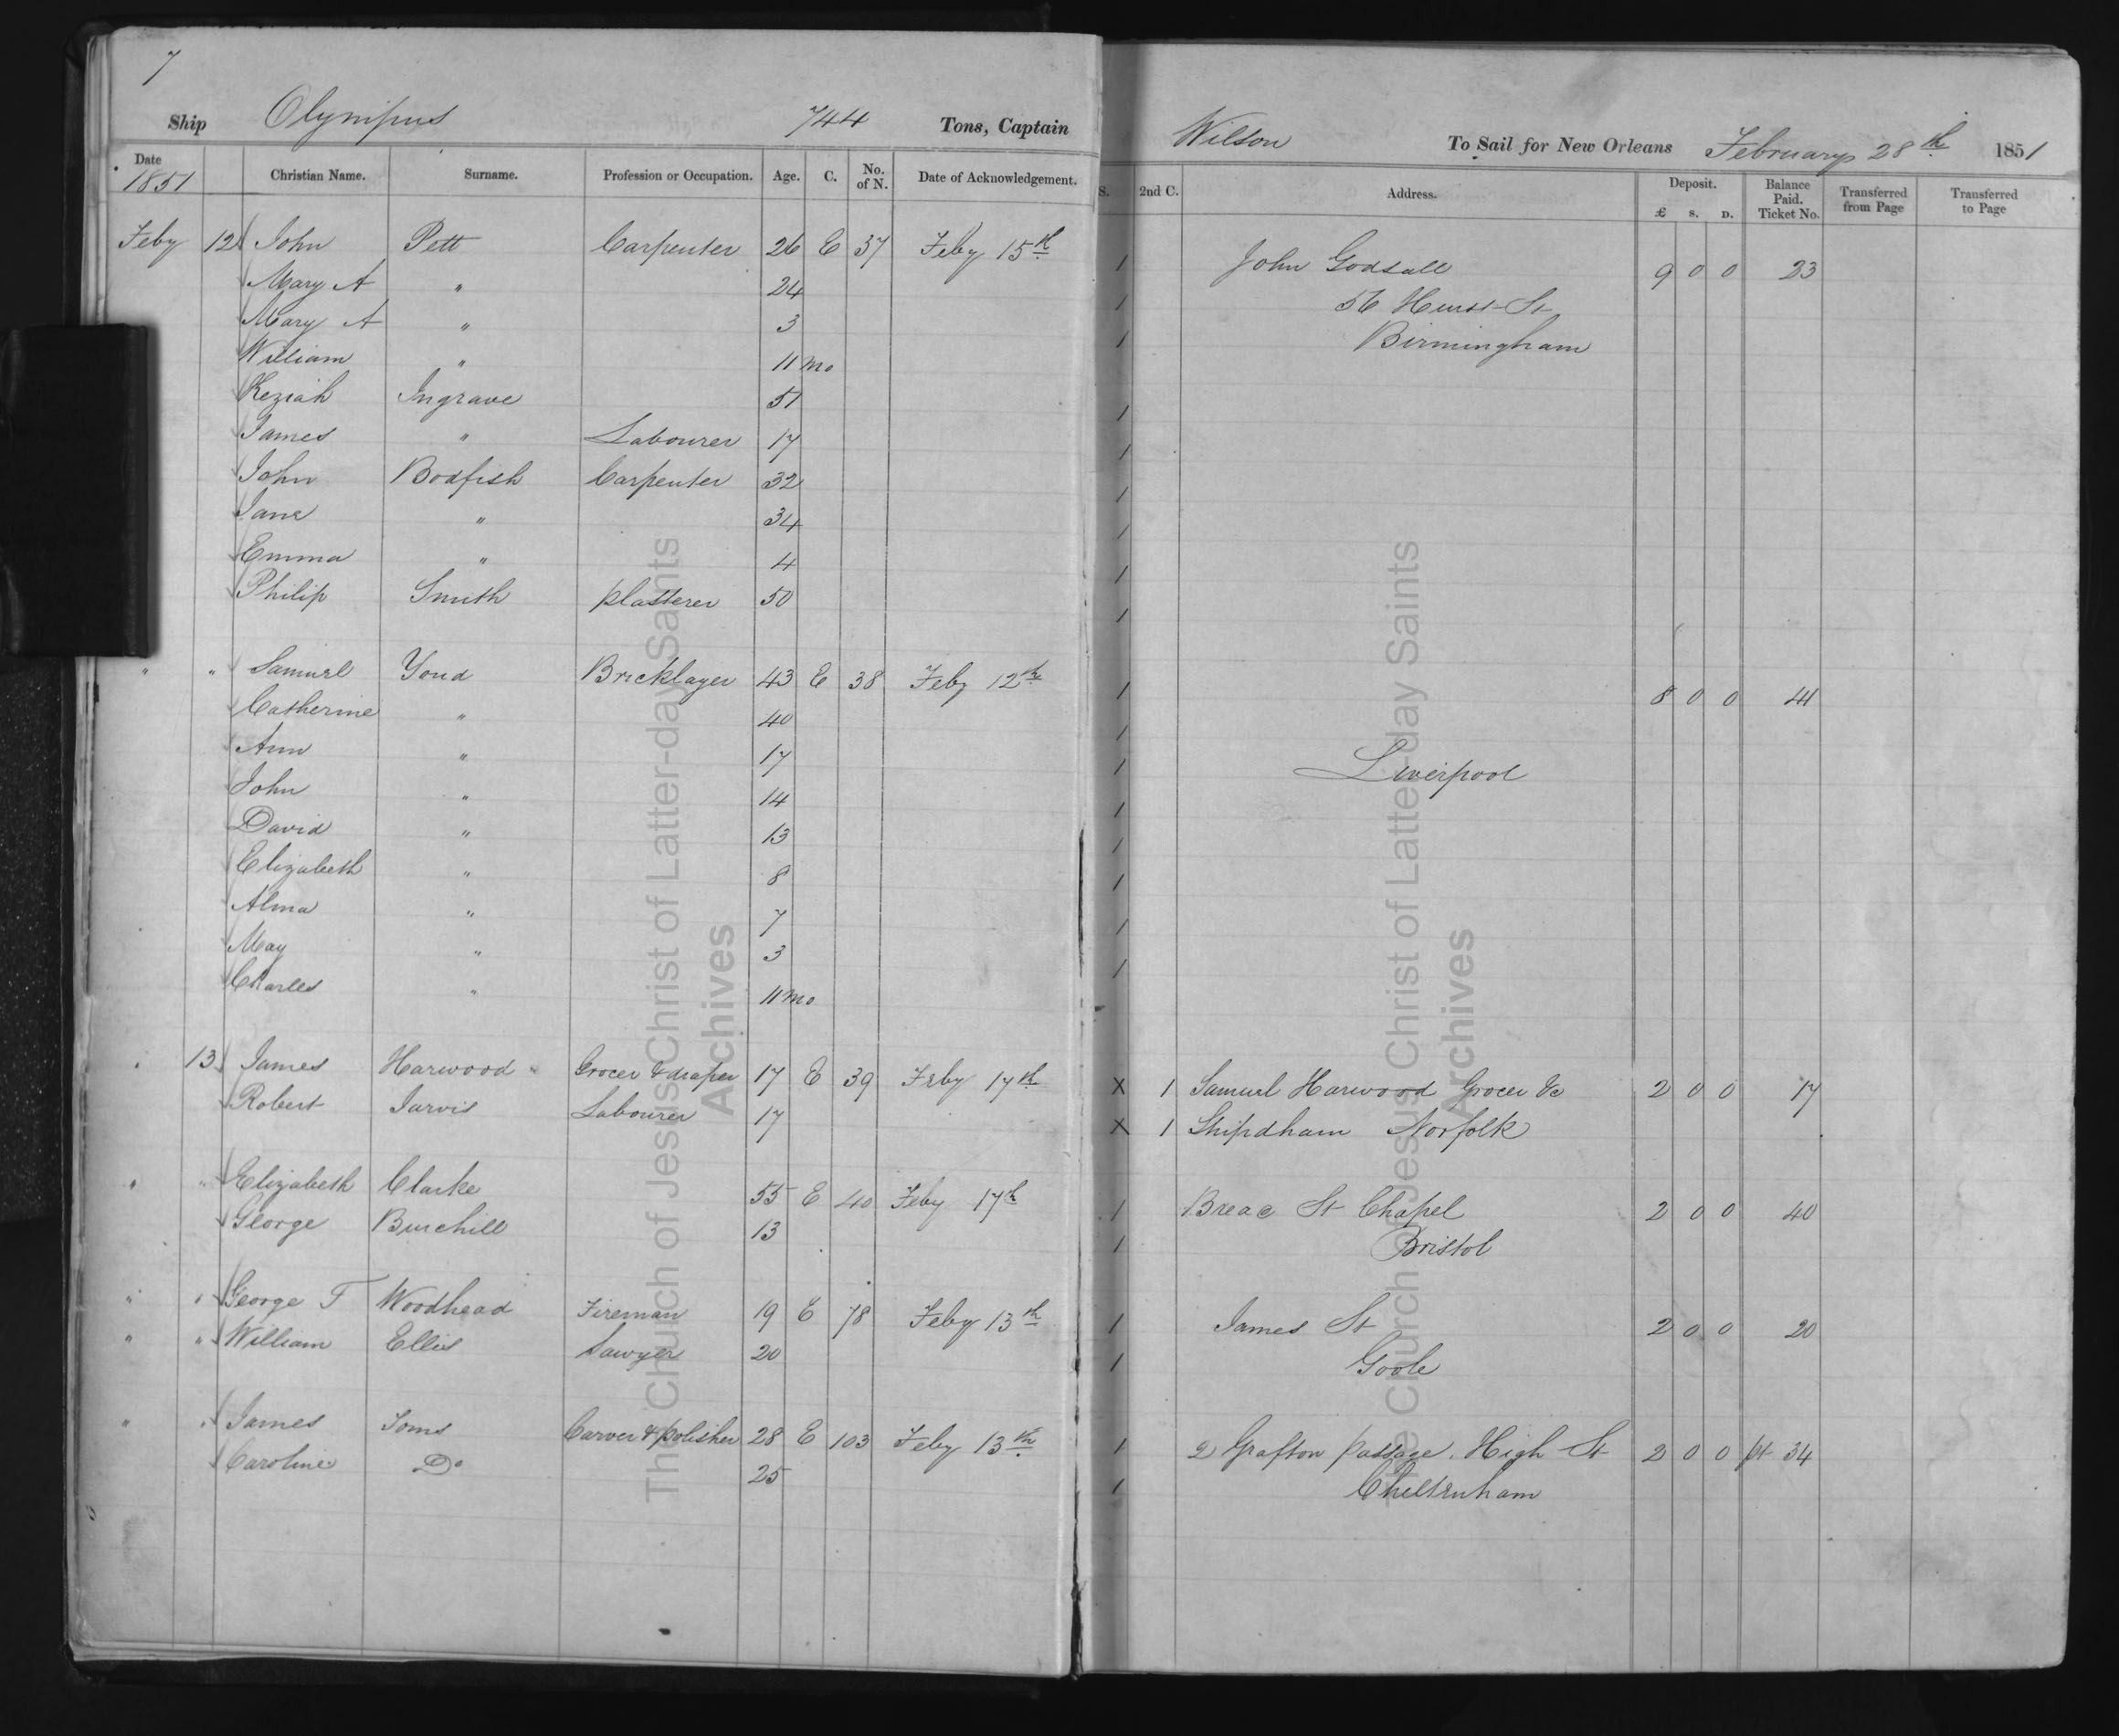 7
Ship Olympus 744 Tons, Captain Wilson To Sail for New Orleans February 28th 1851
Date 1851 Christian Name. Surname. Profession or Occupation. Age. C. No. of N. Date of Acknowledgement. S. 2nd C. Address. Deposit. £ S. D. Balance Paid. Ticket No. Transferred from Page Transferred to Page
Feby 12 John Pett Carpenter 26 E 37 Feby 15th 1 John Godsall 9 0 0 23
Mary A " 24 1 56 Hurst St
Mary A " 3 1 Birmingham
William " 11 mo
Keziah Ingrave 51 1
James " Labourer 17 1
John Bodfish Carpenter 32 1
Jane " 34 1
Emma " 4 1
Philip Smith plasterer 50 1
" " Samuel Yond Bricklayer 43 E 38 Feby 12th 1 8 0 0 41
Catherine " 40 1
Ann " 17 1 Liverpool
John " 14 1
David " 13 1
Elizabeth " 8 1
Alma " 7 1
May " 3 1
Charles " 11 mo
13 James Harwood Grocer & draper 17 E 39 Feby 17th X 1 Samuel Harwood Grocer &c 2 0 0 17
Robert Jarvis Labourer 17 X 1 Shipdham Norfolk
" " Elizabeth Clarke 55 E 40 Feby 17th 1 St Chapel 2 0 0 40
George Burchill 13 1 Bristol
" " George T Woodhead Fireman 19 E 78 Feby 13th 1 James St 2 0 0 20
" " William Ellis Sawyer 20 1 Goole
" " James Toms Carver & polisher 28 E 103 Feby 13th 1 2 Grafton passage. High St 2 0 0 pt 34
Caroline Do 25 1 Cheltenham
The Church of Jesus Christ of Latter-day Saints
Archives
The Church of Jesus Christ of Latter-day Saints
Archives